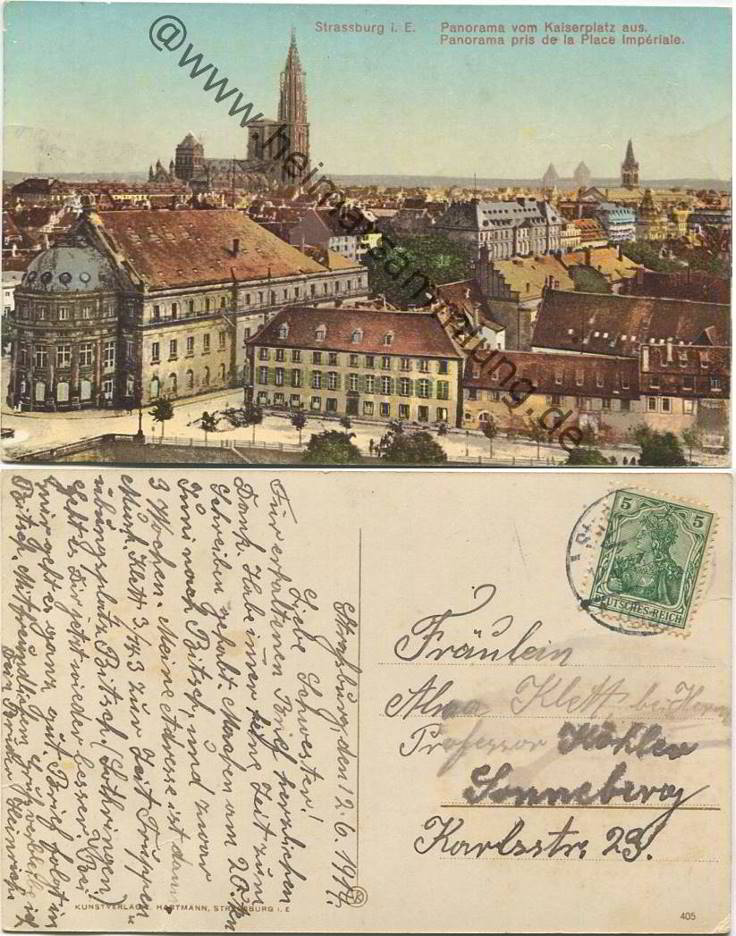 Strassburg i. E. Panorama vom Kaiserplatz aus.
Panorama pris de la Place Impériale.
@www.heimatsammlung.de
Straßburg, den 12.6.1911.
Liebe Schwester!
Für erhaltenen Brief herzlichen
Dank. Habe immer keine Zeit zum
Schreiben gehabt. Machen am 20.ten
Juni nach Bitsch, und zwar
3 Wochen. Meine Adresse ist dann
Musk. Klett 3/143 zur Zeit Truppen
übungsplatz Bitsch (Lothringen)
Geht es Dir jetzt wieder besser. Bei
mir geht es ganz gut. Brief folgt in
Bitsch. Mit freundlichem Gruß verbleibe ich
Dein Bruder Heinrich
5 5
DEUTSCHES REICH
Fräulein
Alma Klett bei Herrn
Professor Köhler
Sonneberg
Karlsstr. 23.
KUNSTVERLAG J. HARTMANN, STRASSBURG i. E
405